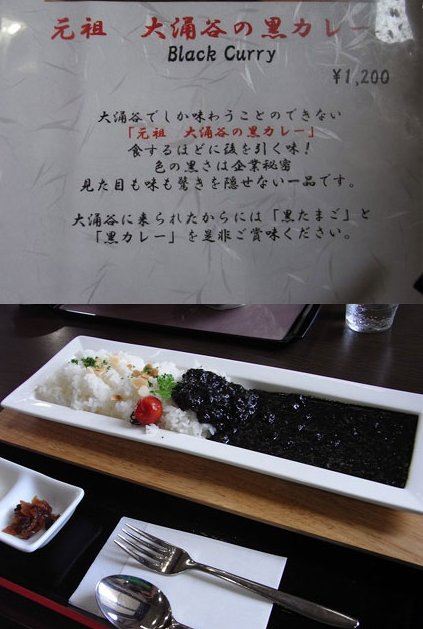 元祖　大涌谷の黒カレー
Black Curry
¥1,200
大涌谷でしか味わうことのできない
「元祖　大涌谷の黒カレー」
食するほどに後を引く味！
色の黒さは企業秘密
見た目も味も驚きを隠せない一品です。
大涌谷に来られたからには「黒たまご」と
「黒カレー」を是非ご賞味ください。